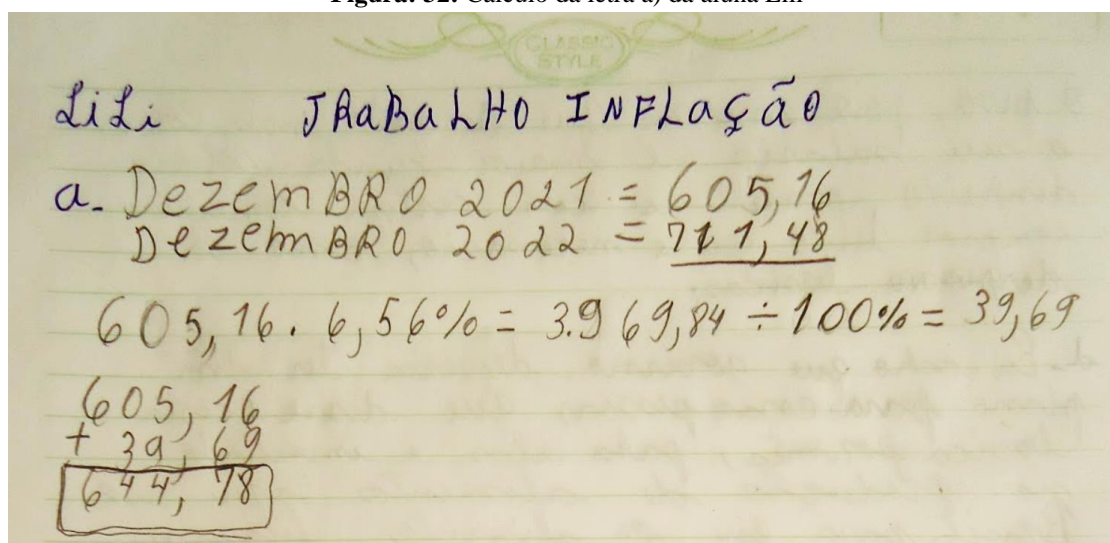 Figura. 32: Cálculo da letra a) da aluna Lili
CLASSIC
STYLE
LiLi TRaBaLHO INFLaÇãO
a. DezemBRO 2021 = 605,16
DezemBRO 2022 = 711,48
605,16 . 6,56% = 3.969,84 ÷ 100% = 39,69
605,16
+ 39,69
644,78